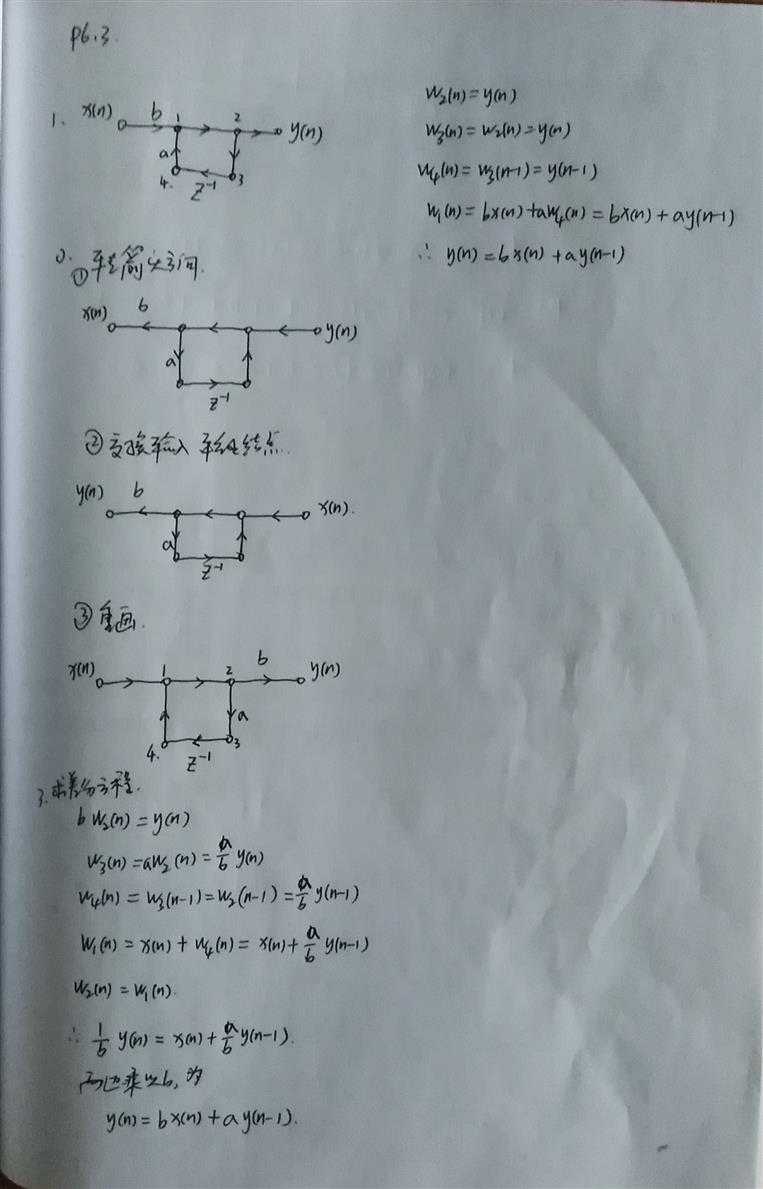 P6.3.
1. x(n) b 1 2 y(n)
a 4. z⁻¹ 3
w₂(n) = y(n)
w₃(n) = w₂(n) = y(n)
w₄(n) = w₃(n-1) = y(n-1)
w₁(n) = bx(n) + aw₄(n) = bx(n) + ay(n-1)
∴ y(n) = bx(n) + ay(n-1)
①
x(n) b y(n)
a
z⁻¹
② 交换输入 输出结点.
y(n) b x(n).
a
z⁻¹
③ 重画.
x(n) 1 2 b y(n)
a
4. z⁻¹ 3
3. 求差分方程.
b w₂(n) = y(n)
w₃(n) = aw₂(n) = a/b y(n)
w₄(n) = w₃(n-1) = w₂(n-1) = a/b y(n-1)
w₁(n) = x(n) + w₄(n) = x(n) + a/b y(n-1)
w₂(n) = w₁(n).
∴ 1/b y(n) = x(n) + a/b y(n-1).
两边乘以b, 为
y(n) = bx(n) + ay(n-1).